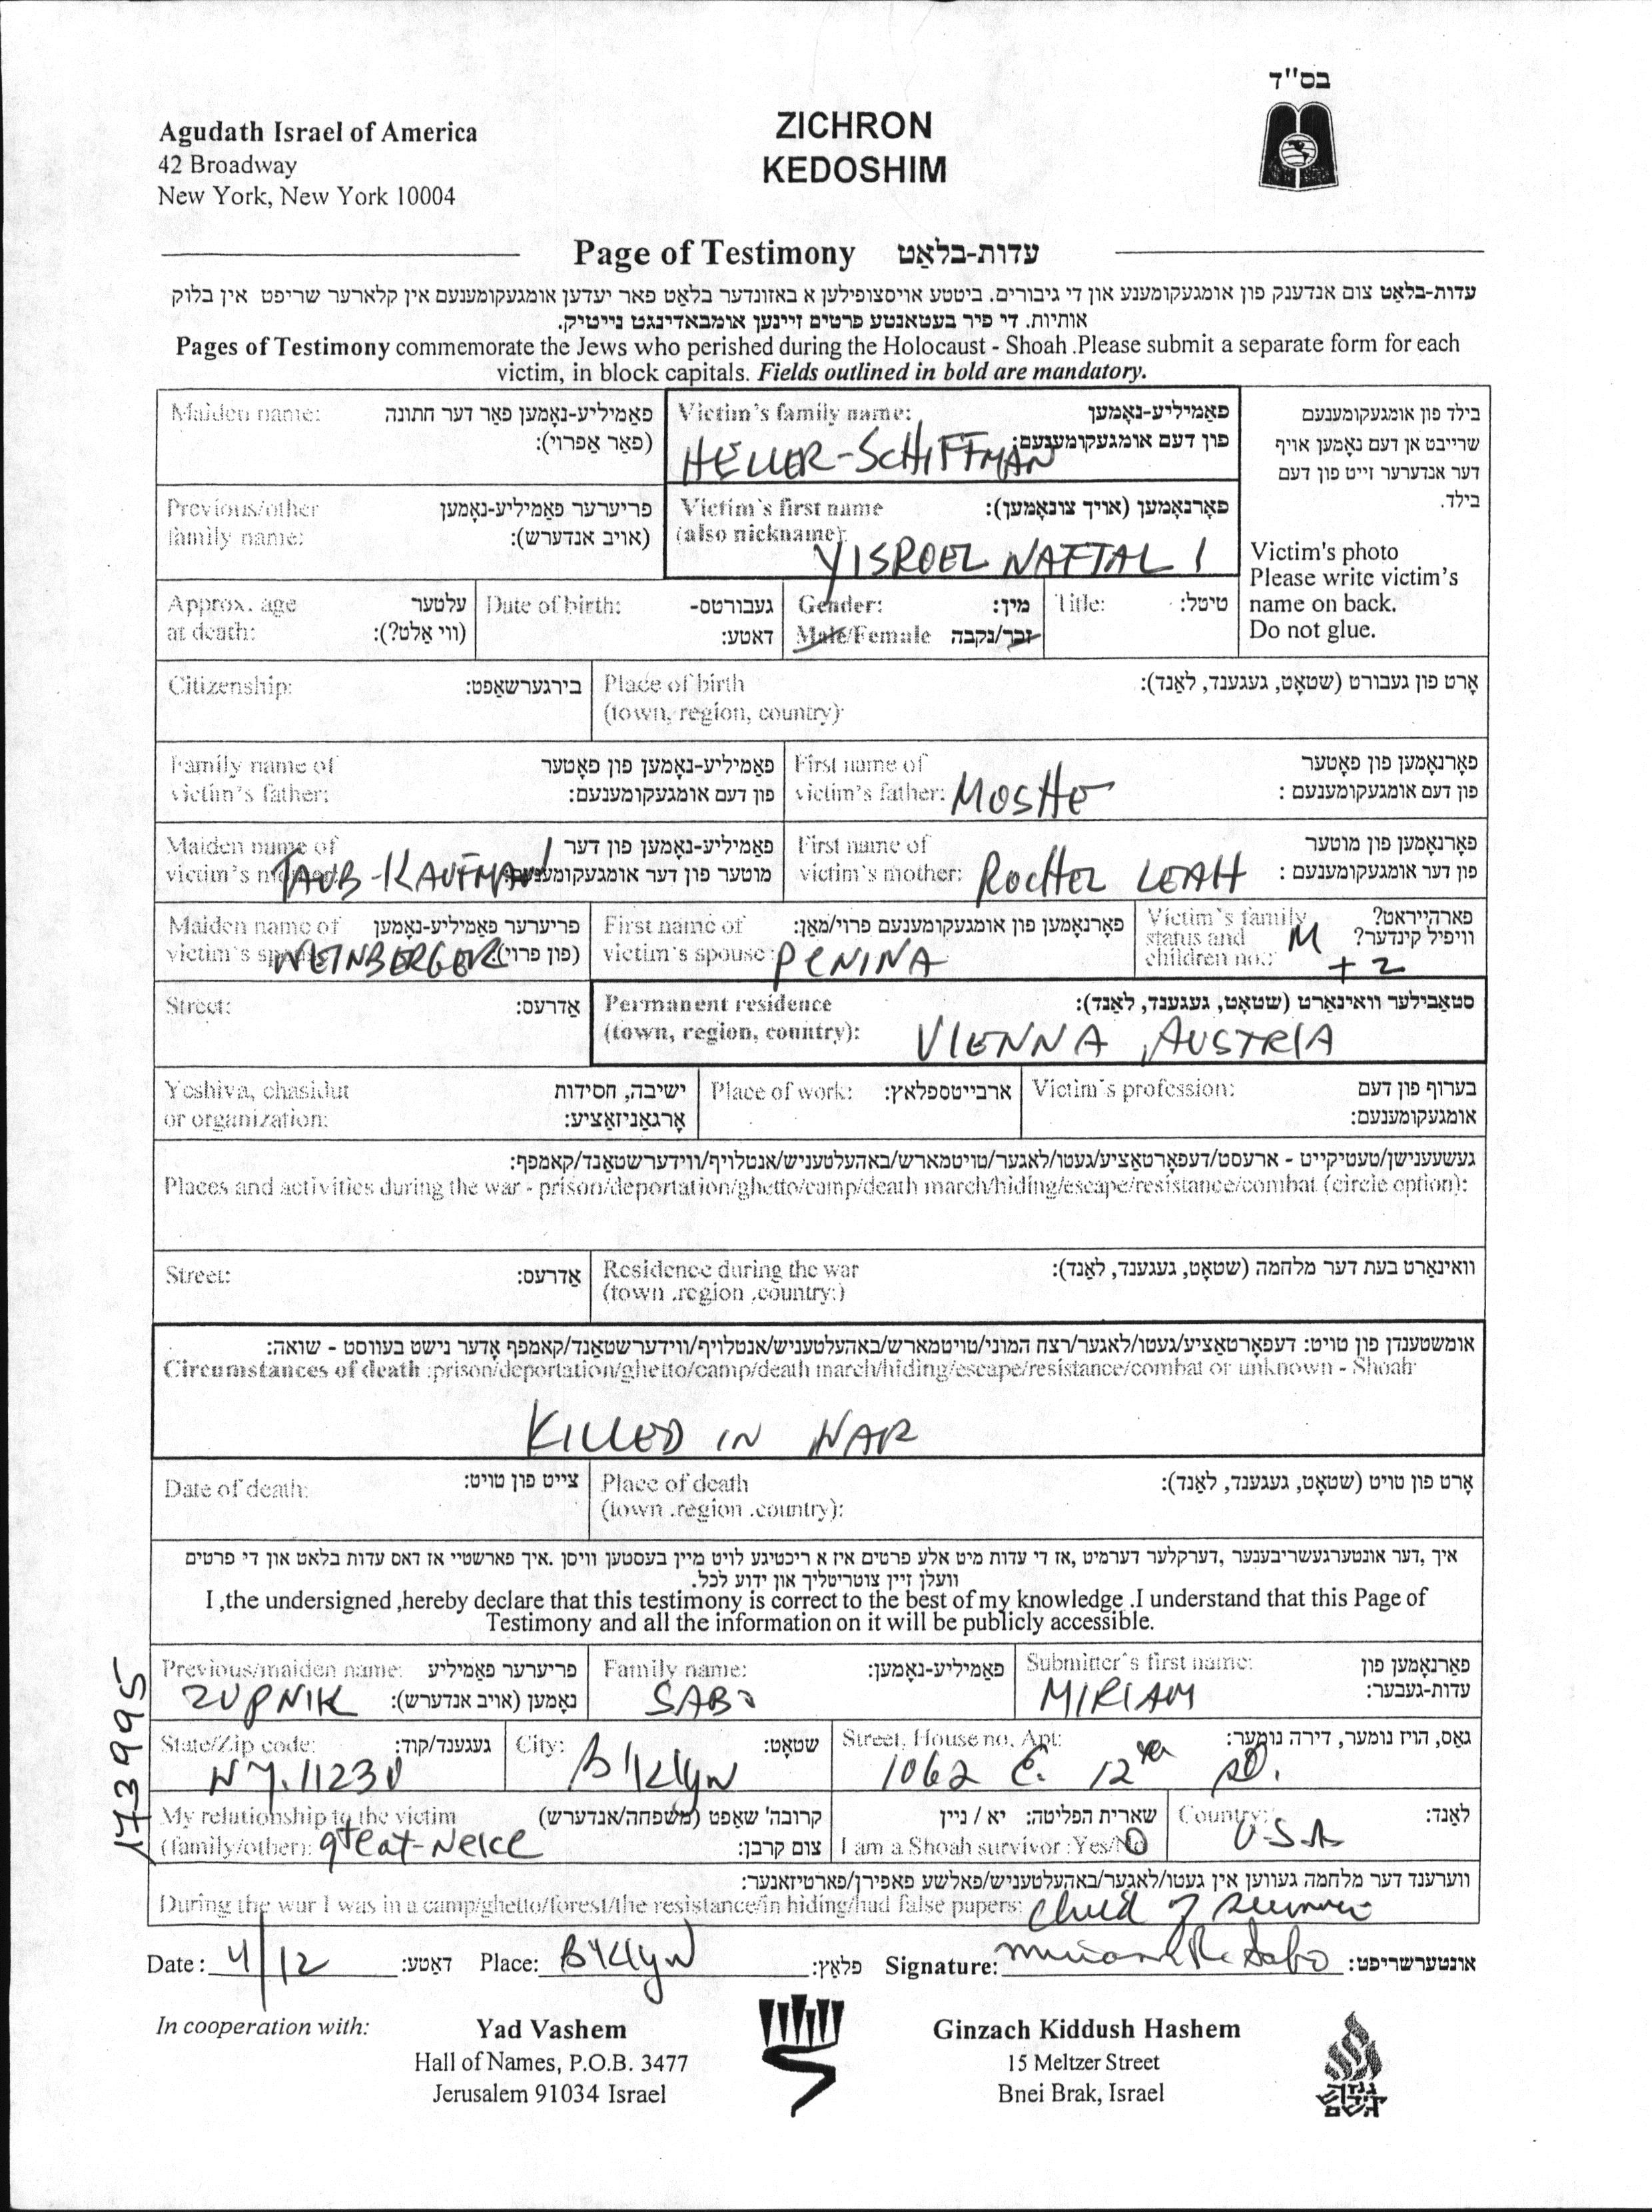 בס"ד
Agudath Israel of America
42 Broadway
New York, New York 10004
ZICHRON
KEDOSHIM
Page of Testimony עדות-בלאַט
עדות-בלאַט צום אנדענק פון אומגעקומענע און די גיבורים. ביטטע אויסצופילען א באזונדער בלאַט פאר יעדען אומגעקומענעם אין קלארער שריפט אין בלוק
אותיות. די פיר בעטאנטע פרטים זיינען אומבאדינגט נייטיק.
Pages of Testimony commemorate the Jews who perished during the Holocaust - Shoah .Please submit a separate form for each
victim, in block capitals. Fields outlined in bold are mandatory.
Maiden name: פאַמיליע-נאָמען פאַר דער חתונה
(פאַר אַפרוי):
Victim's family name: פאַמיליע-נאָמען
פון דעם אומגעקומענעם:
HELLER-SCHIFFMAN
בילד פון אומגעקומענעם
שרייבט אן דעם נאָמען אויף
דער אנדערער זייט פון דעם
בילד.
Victim's photo
Please write victim's
name on back.
Do not glue.
Previous/other פריערער פאַמיליע-נאָמען
family name: (אויב אנדערש):
Victim's first name פאָרנאָמען (אויך צונאָמען):
(also nickname):
YISROEL NAFTALI
Approx. age עלטער
at death: (ווי אַלט?):
Date of birth: געבורטס-
דאטע:
Gender: מין:
Male/Female זכר/נקבה
Title: טיטל:
Citizenship: בירגערשאַפט:
Place of birth אָרט פון געבורט (שטאָט, געגענד, לאַנד):
(town, region, country):
Family name of פאַמיליע-נאָמען פון פאָטער
victim's father: פון דעם אומגעקומענעם:
First name of פאָרנאָמען פון פאָטער
victim's father: MOSHE פון דעם אומגעקומענעם :
Maiden name of פאַמיליע-נאָמען פון דער
victim's mother: TAUB-KAUFMAN מוטער פון דער אומגעקומענעם:
First name of פאָרנאָמען פון מוטער
victim's mother: ROCHEL LEAH פון דער אומגעקומענעם :
Maiden name of פריערער פאַמיליע-נאָמען
victim's spouse: WEINBERGER (פון פרוי):
First name of פאָרנאָמען פון אומגעקומענעם פרוי/מאַן:
victim's spouse: PENINA
Victim's family פארהייראט?
status and M וויפיל קינדער?
children no.: + 2
Street: אַדרעס:
Permanent residence סטאַבילער וואינאַרט (שטאָט, געגענד, לאַנד):
(town, region, country): VIENNA, AUSTRIA
Yeshiva, chasidut ישיבה, חסידות
or organization: אָרגאַניזאַציע:
Place of work: ארבייטספלאץ:
Victim's profession: בערוף פון דעם
אומגעקומענעם:
געשעענישן/טעטיקייט - ארעסט/דעפאָרטאַציע/געטו/לאגער/טויטמארש/באהעלטעניש/אנטלויף/ווידערשטאַנד/קאמפף:
Places and activities during the war - prison/deportation/ghetto/camp/death march/hiding/escape/resistance/combat (circle option):
Street: אַדרעס:
Residence during the war וואינאַרט בעת דער מלחמה (שטאָט, געגענד, לאַנד):
(town .region .country:)
אומשטענדן פון טויט: דעפאָרטאַציע/געטו/לאגער/רצח המוני/טויטמארש/באהעלטעניש/אנטלויף/ווידערשטאַנד/קאמפף אָדער נישט בעווסט - שואה:
Circumstances of death :prison/deportation/ghetto/camp/death march/hiding/escape/resistance/combat or unknown - Shoah
KILLED IN WAR
Date of death: צייט פון טויט:
Place of death אָרט פון טויט (שטאָט, געגענד, לאַנד):
(town .region .country):
איך ,דער אונטערגעשריבענער ,דערקלער דערמיט ,אז די עדות מיט אלע פרטים איז א ריכטיגע לויט מיין בעסטען וויסן .איך פארשטיי אז דאס עדות בלאט און די פרטים
וועלן זיין צוטריטליך און ידוע לכל.
I ,the undersigned ,hereby declare that this testimony is correct to the best of my knowledge .I understand that this Page of
Testimony and all the information on it will be publicly accessible.
Previous/maiden name: פריערער פאַמיליע
ZUPNIK נאָמען (אויב אנדערש):
Family name: פאַמיליע-נאָמען:
SABO
Submitter's first name: פאָרנאָמען פון
MIRIAM עדות-געבער:
State/Zip code: געגענד/קוד:
NY. 11230
City: שטאָט:
B'klyn
Street, House no, Apt: גאַס, הויז נומער, דירה נומער:
1062 E. 12th
My relationship to the victim קרובה' שאפט (משפחה/אנדערש)
(family/other): great-neice צום קרבן:
שארית הפליטה: יא / ניין
I am a Shoah survivor :Yes/No
Country: לאַנד:
U.S.A
ווערענד דער מלחמה געווען אין געטו/לאַגער/באהעלטעניש/פאלשע פאפירן/פארטיזאנער:
During the war I was in a camp/ghetto/forest/the resistance/in hiding/had false papers: Child of survivor
Date: 4/12 דאטע: Place: B'klyn פלאץ: Signature: Miriam R. Sabo אונטערשריפט:
173995
In cooperation with:
Yad Vashem
Hall of Names, P.O.B. 3477
Jerusalem 91034 Israel
Ginzach Kiddush Hashem
15 Meltzer Street
Bnei Brak, Israel
גנזך
קידוש
השם